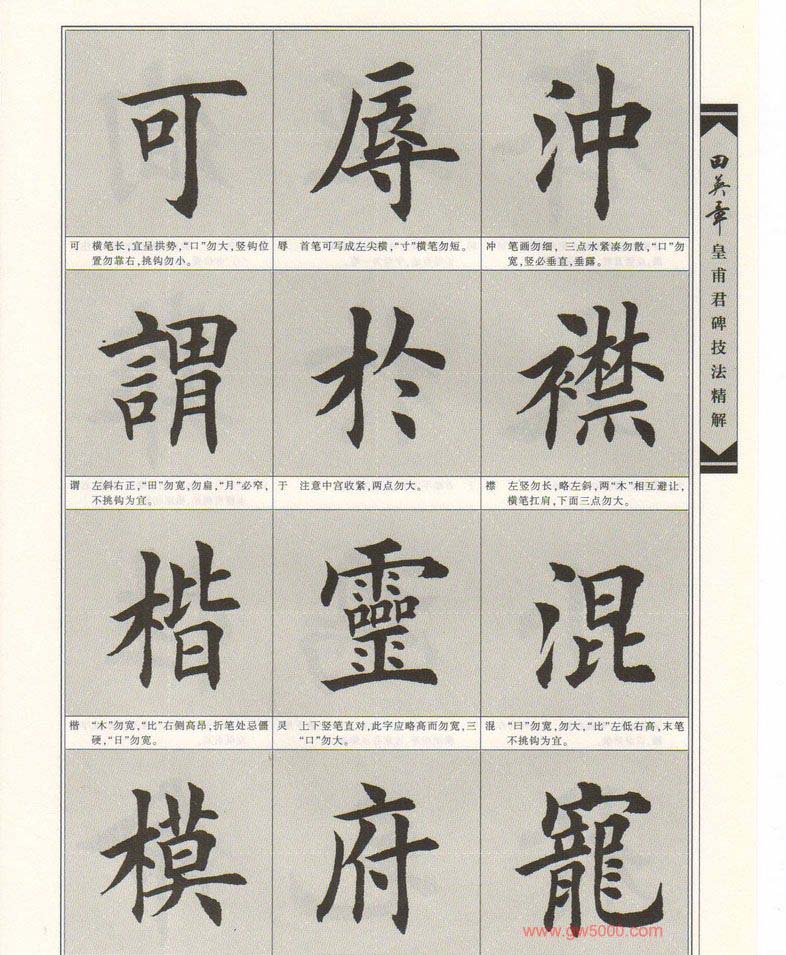 可 辱 沖
可 横笔长,宜呈拱势,“口”勿大,竖钩位
置勿靠右,挑钩勿小。
辱 首笔可写成左尖横,“寸”横笔勿短。
冲 笔画勿细,三点水紧凑勿散,“口”勿
宽,竖必垂直,垂露。
謂 於 襟
谓 左斜右正,“田”勿宽,勿扁,“月”必窄,
不挑钩为宜。
于 注意中宫收紧,两点勿大。
襟 左竖勿长,略左斜,两“木”相互避让,
横笔扛肩,下面三点勿大。
楷 靈 混
楷 “木”勿宽,“比”右侧高昂,折笔处忌僵
硬,“日”勿宽。
灵 上下竖笔直对,此字应略高而勿宽,三
“口”勿大。
混 “曰”勿宽,勿大,“比”左低右高,末笔
不挑钩为宜。
模 府 寵
田英章皇甫君碑技法精解
www.gw5000.com